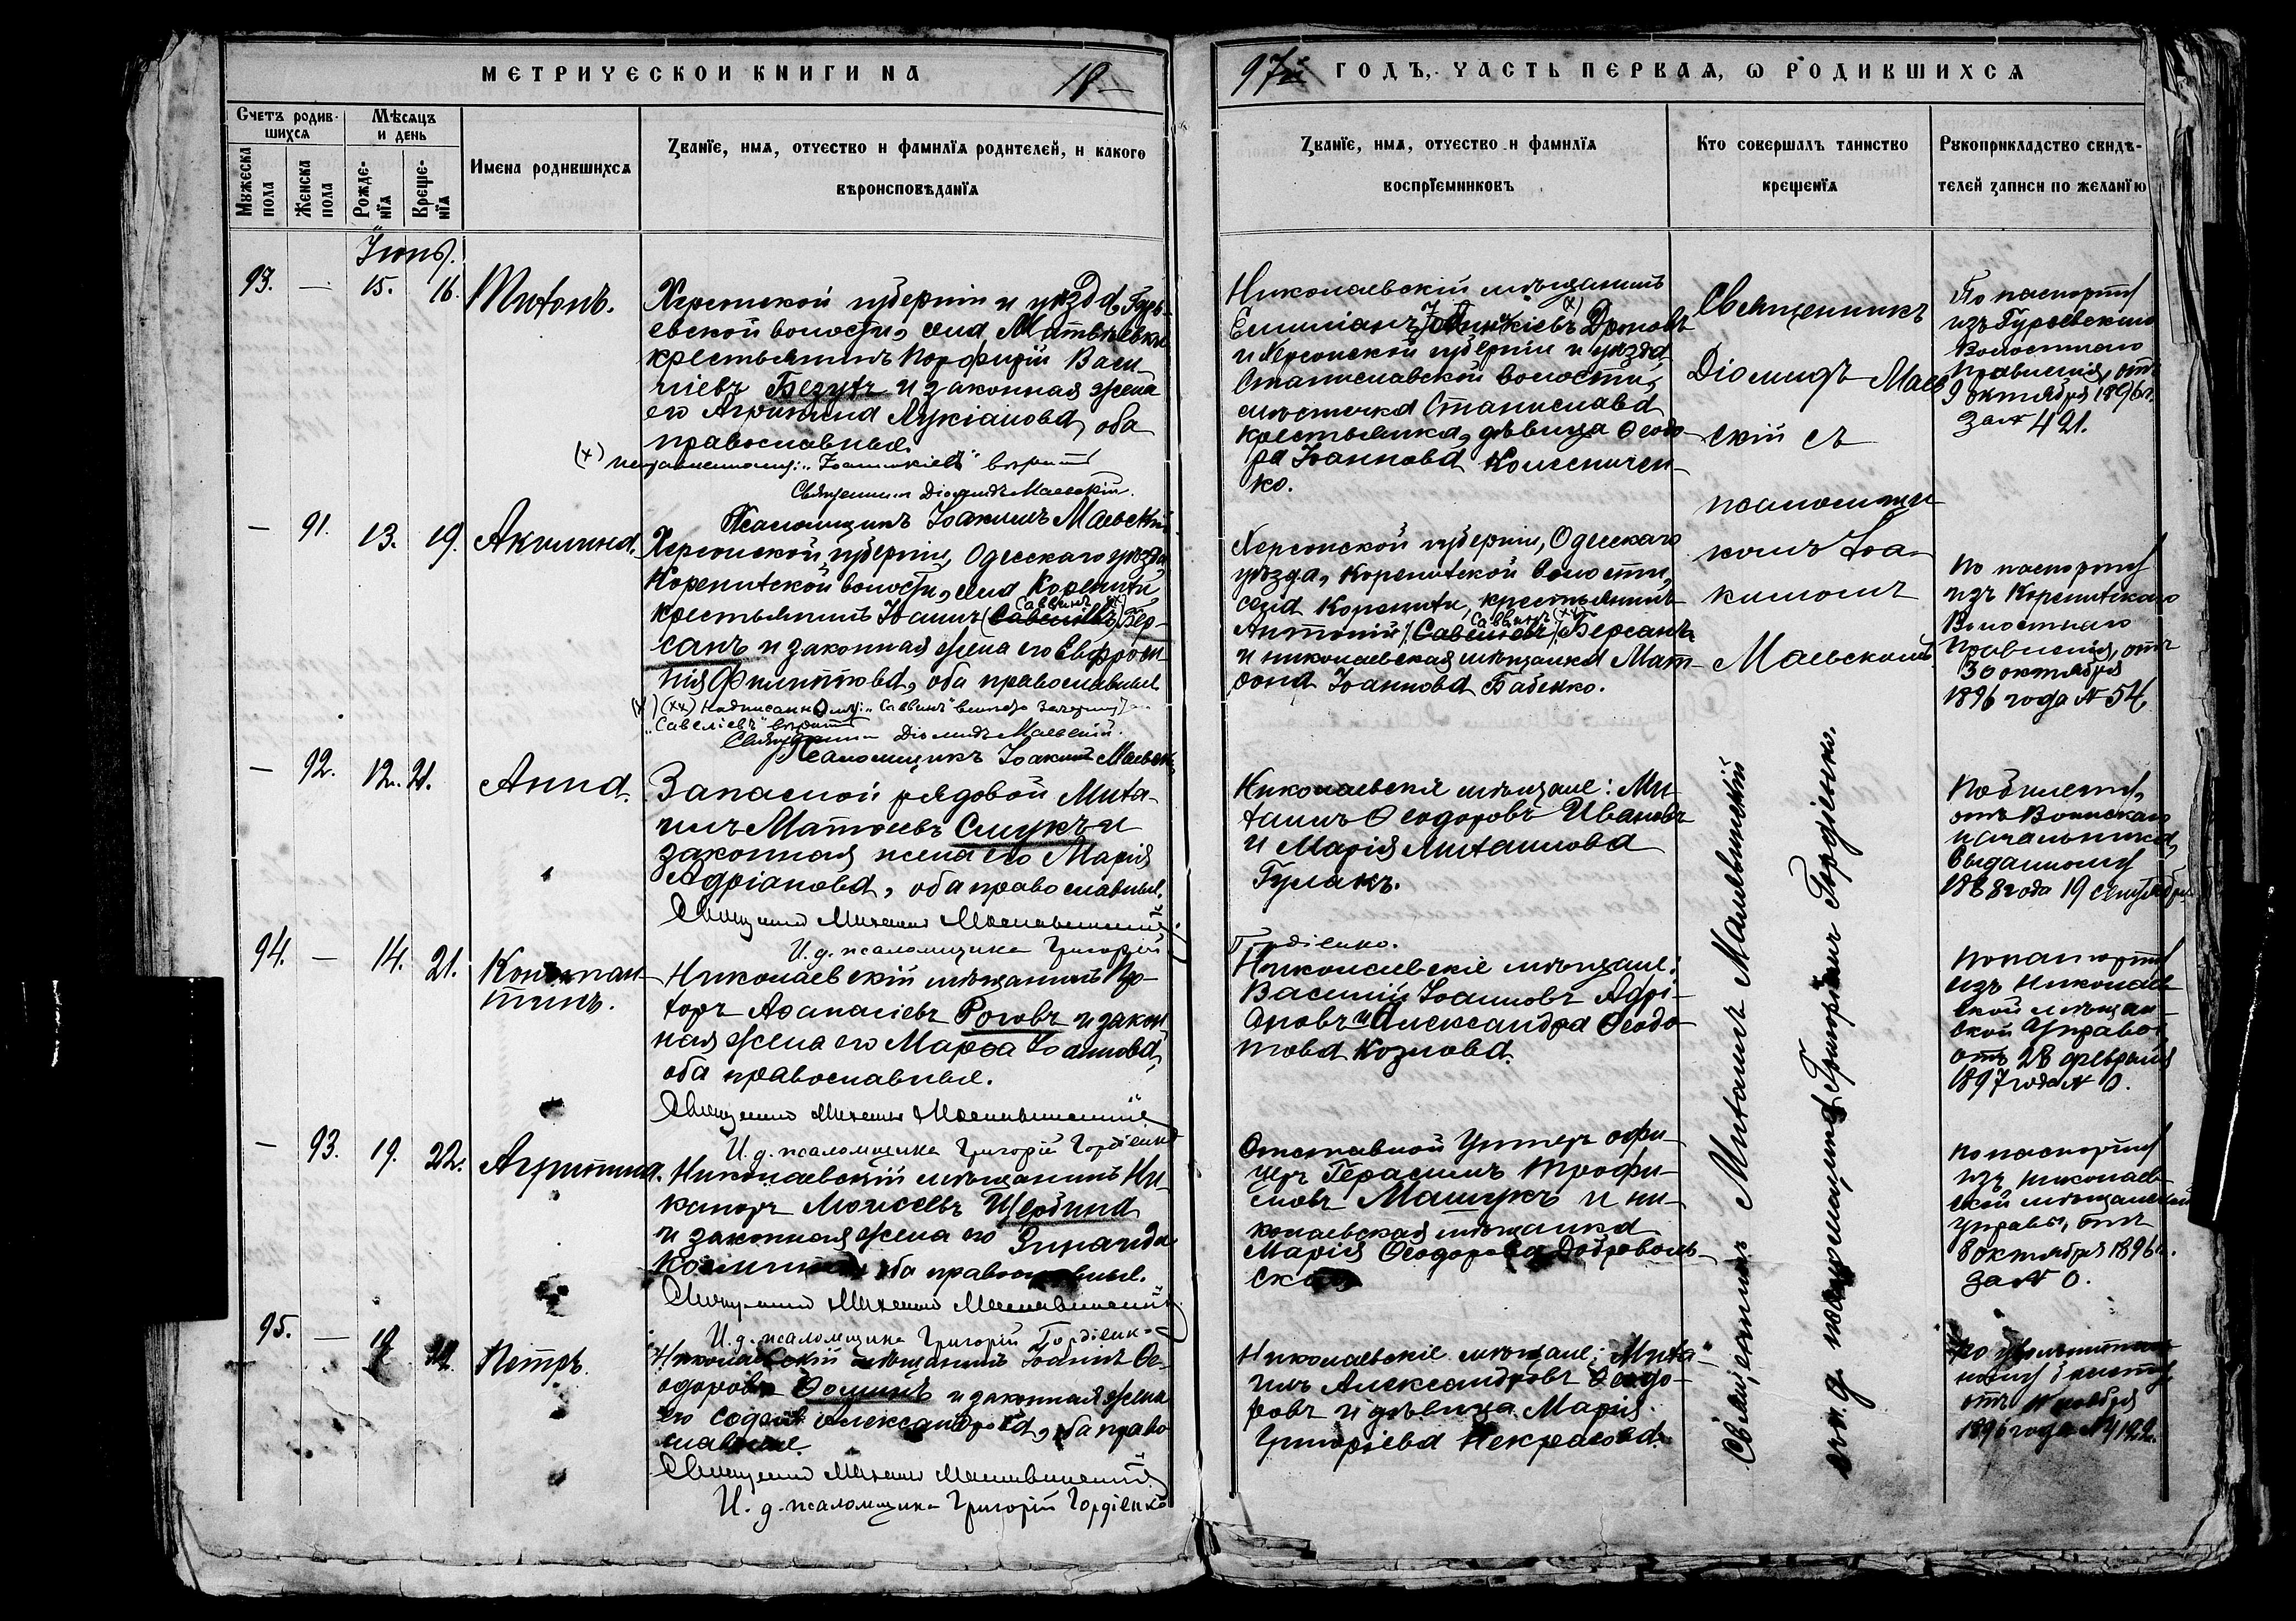 МЕТРИЧЕСКОЙ КНИГИ НА 18
97й ГОДЪ, ЧАСТЬ ПЕРВАЯ, Ѡ РОДИВШИХСЯ
Счетъ родив-
шихся
Мѣсяцъ
и день
Мужеска
пола
Женска
пола
Рожде-
нія
Креще-
нія
Имена родившихся
Званїе, имя, отчество и фамилїя родителей, и какого
вѣроисповѣданїя
Званїе, имя, отчество и фамилїя
воспрїемниковъ
Кто совершалъ таинство
крещенїя
Рукоприкладство свидѣ-
телей записи по желанїю
Іюнь.
93. — 15. 16. Митонъ.
Херсонской губерніи и уѣзда, Гурь-
евской волости, села Матвѣевки
крестьянинъ Порфирій Васи-
ліевъ Безутъ и законная жена
его Агриппина Лукіанова, оба
православные.
(х) По
"Іоанникіевъ" вѣрить
Священникъ Діомидъ Маевскій.
Псаломщикъ Іоакимъ Маевскій
Николаевскій мѣщанинъ
Емиліанъ Іоанникіевъ (х) Дроновъ
и Херсонской губерніи и уѣзда
Станиславской волости,
мѣстечка Станислава
крестьянка, дѣвица Ѳеодо-
ра Іоаннова Колесничен-
ко.
Священникъ
Діомидъ Маев
скій съ
псаломщи
комъ Іоа-
кимомъ
Маевскимъ.
По паспорту
изъ Гурьевскаго
Волостнаго
Правленія, отъ
9 октября 1896 г.
за № 421.
— 91. 13. 19. Акилина.
Херсонской губерніи, Одесскаго уѣзда,
Коренитской волости, села Коренити,
крестьянинъ Іоаннъ (Савеліевъ) Саввинъ (х) Бер-
санъ и законная жена его Евфроси-
нія Филиппова, оба православные
(х) (хх) Надписанному: "Саввинъ" вмѣсто зачеркнутаго
"Савеліевъ" вѣрить
Священникъ Діомидъ Маевскій.
Псаломщикъ Іоакимъ Маевскій
Херсонской губерніи, Одесскаго
уѣзда, Коренитской волости,
села Коренити, крестьянинъ
Антоній (Савеліевъ) Саввинъ (хх) Берсанъ
и николаевская мѣщанка Мат-
рона Іоаннова Бабенко.
По паспорту
изъ Коренитскаго
Волостнаго
Правленія, отъ
30 октября
1896 года № 54.
— 92. 12. 21. Анна.
Запасной рядовой Миха-
илъ Матѳеевъ Смукъ и
законная жена его Марія
Адріанова, оба православные.
Священникъ Михаилъ
И. д. псаломщика Григорій
Гордіенко.
Николаевскіе мѣщане: Ми-
хаилъ Ѳеодоровъ Ивановъ
и Марія Михаилова
Гулакъ.
По билету,
отъ Воинскаго
начальника,
выданному
1888 года 19 сентября
94. — 14. 21. Констан-
тинъ.
Николаевскій мѣщанинъ Про-
хоръ Аѳанасіевъ Роговъ и закон
ная жена его Марѳа Іоаннова,
оба православные.
Священникъ Михаилъ
И. д. псаломщика Григорій Гордіенко
Николаевскіе мѣщане:
Василій Іоанновъ Адрі-
ановъ и Александра Ѳеодо-
това Козлова.
По паспорту
изъ Николаев
ской мѣщан-
ской Управы
отъ 28 февраля
1897 года № 0.
— 93. 19. 22. Агриппина.
Николаевскій мѣщанинъ Ни-
каноръ Моисеевъ Щербина
и законная жена его Зинаида
оба православные.
Священникъ Михаилъ
И. д. псаломщика Григорій Гордіенко
Отставной Унтеръ офи-
церъ Герасимъ Трофи-
мовъ Машукъ и ни-
колаевская мѣщанка
Марія Ѳеодорова Доброволь-
ская
По паспорту
изъ николаев-
ской мѣщанской
управы, отъ
8 октября 1896 г.
за № 0.
95. — 19 22. Петръ.
Николаевскій мѣщанинъ Іоаннъ Ѳе-
одоровъ Ѳоминъ и законная жена
его Софія Александрова, оба право
славные.
Священникъ Михаилъ
И. д. псаломщика Григорій Гордіенко
Николаевскіе мѣщане: Миха-
илъ Александровъ Ѳеодо-
ровъ и дѣвица Марія
Григоріева Некрасова.
По увольнитель-
ному билету
отъ 11 ноября
1896 года № 4122.
Священникъ Михаилъ
съ и. д. псаломщика Григоріемъ Гордіенко.